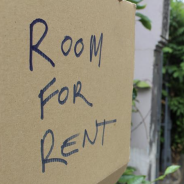 ROOM
FOR
RENT